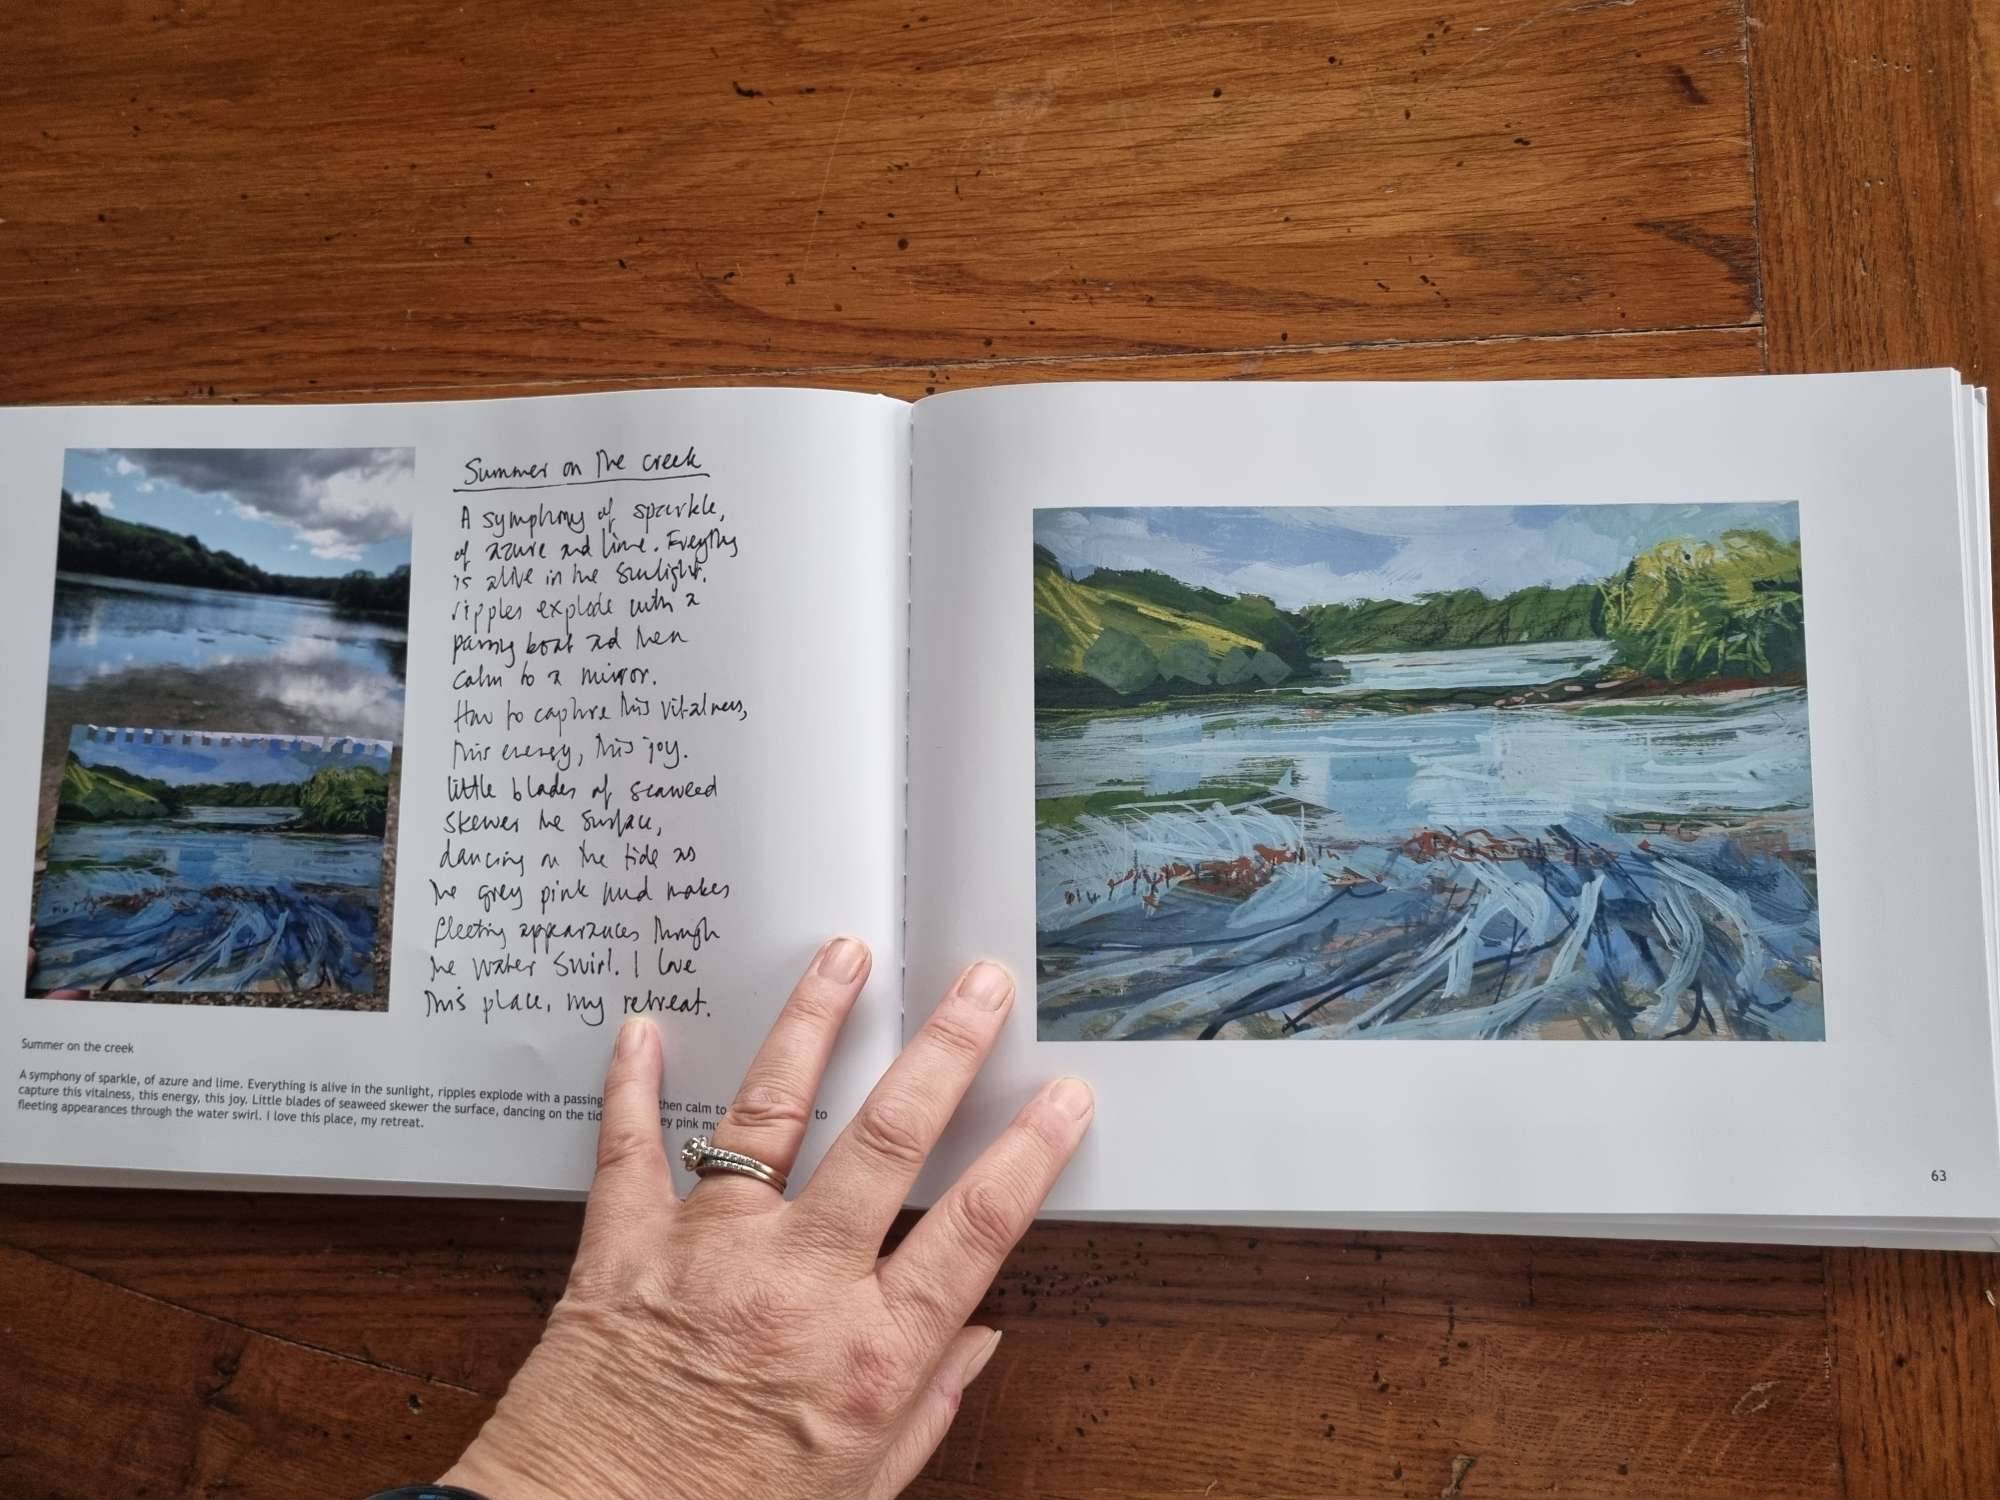 Summer on the creek
A symphony of sparkle,
of azure and lime. Everything
is alive in the sunlight.
ripples explode with a
passing boat and then
calm to a mirror.
How to capture this vitalness,
this energy, this joy.
little blades of seaweed
skewer the surface,
dancing on the tide as
the grey pink mud makes
fleeting appearances through
the water swirl. I love
this place, my retreat.
Summer on the creek
A symphony of sparkle, of azure and lime. Everything is alive in the sunlight, ripples explode with a passing then calm to to
capture this vitalness, this energy, this joy. Little blades of seaweed skewer the surface, dancing on the tid ey pink mu
fleeting appearances through the water swirl. I love this place, my retreat.
63